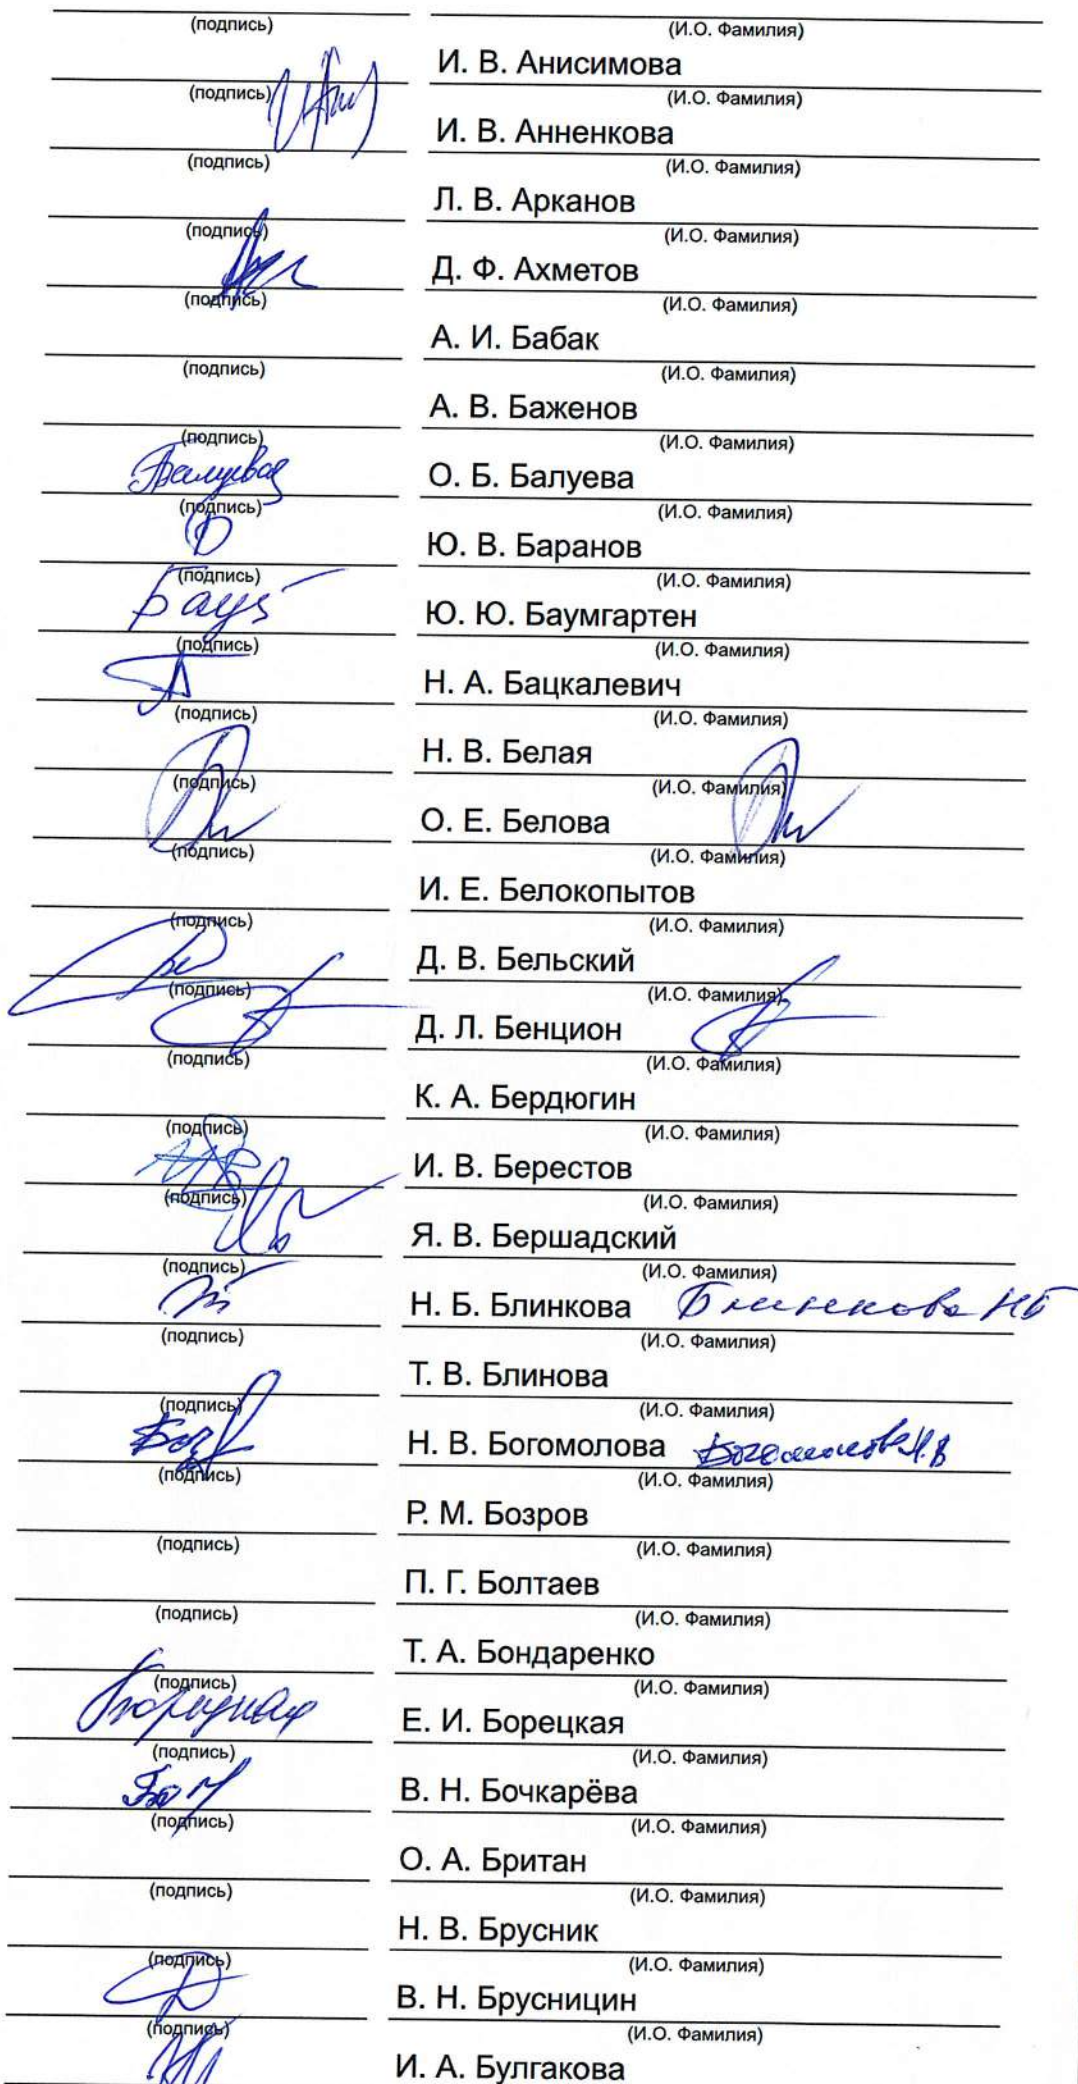 (подпись) (И.О. Фамилия)
И. В. Анисимова
(подпись) (И.О. Фамилия)
И. В. Анненкова
(подпись) (И.О. Фамилия)
Л. В. Арканов
(подпись) (И.О. Фамилия)
Д. Ф. Ахметов
(подпись) (И.О. Фамилия)
А. И. Бабак
(подпись) (И.О. Фамилия)
А. В. Баженов
(подпись) (И.О. Фамилия)
Балуева О. Б. Балуева
(подпись) (И.О. Фамилия)
Ю. В. Баранов
(подпись) (И.О. Фамилия)
Ю. Ю. Баумгартен
(подпись) (И.О. Фамилия)
Н. А. Бацкалевич
(подпись) (И.О. Фамилия)
Н. В. Белая
(подпись) (И.О. Фамилия)
О. Е. Белова
(подпись) (И.О. Фамилия)
И. Е. Белокопытов
(подпись) (И.О. Фамилия)
Д. В. Бельский
(подпись) (И.О. Фамилия)
Д. Л. Бенцион
(подпись) (И.О. Фамилия)
К. А. Бердюгин
(подпись) (И.О. Фамилия)
И. В. Берестов
(подпись) (И.О. Фамилия)
Я. В. Бершадский
(подпись) (И.О. Фамилия)
Н. Б. Блинкова Блинкова НБ
(подпись) (И.О. Фамилия)
Т. В. Блинова
(подпись) (И.О. Фамилия)
Н. В. Богомолова Богомолова Н.В
(подпись) (И.О. Фамилия)
Р. М. Бозров
(подпись) (И.О. Фамилия)
П. Г. Болтаев
(подпись) (И.О. Фамилия)
Т. А. Бондаренко
(подпись) (И.О. Фамилия)
Е. И. Борецкая
(подпись) (И.О. Фамилия)
В. Н. Бочкарёва
(подпись) (И.О. Фамилия)
О. А. Британ
(подпись) (И.О. Фамилия)
Н. В. Брусник
(подпись) (И.О. Фамилия)
В. Н. Брусницин
(подпись) (И.О. Фамилия)
И. А. Булгакова